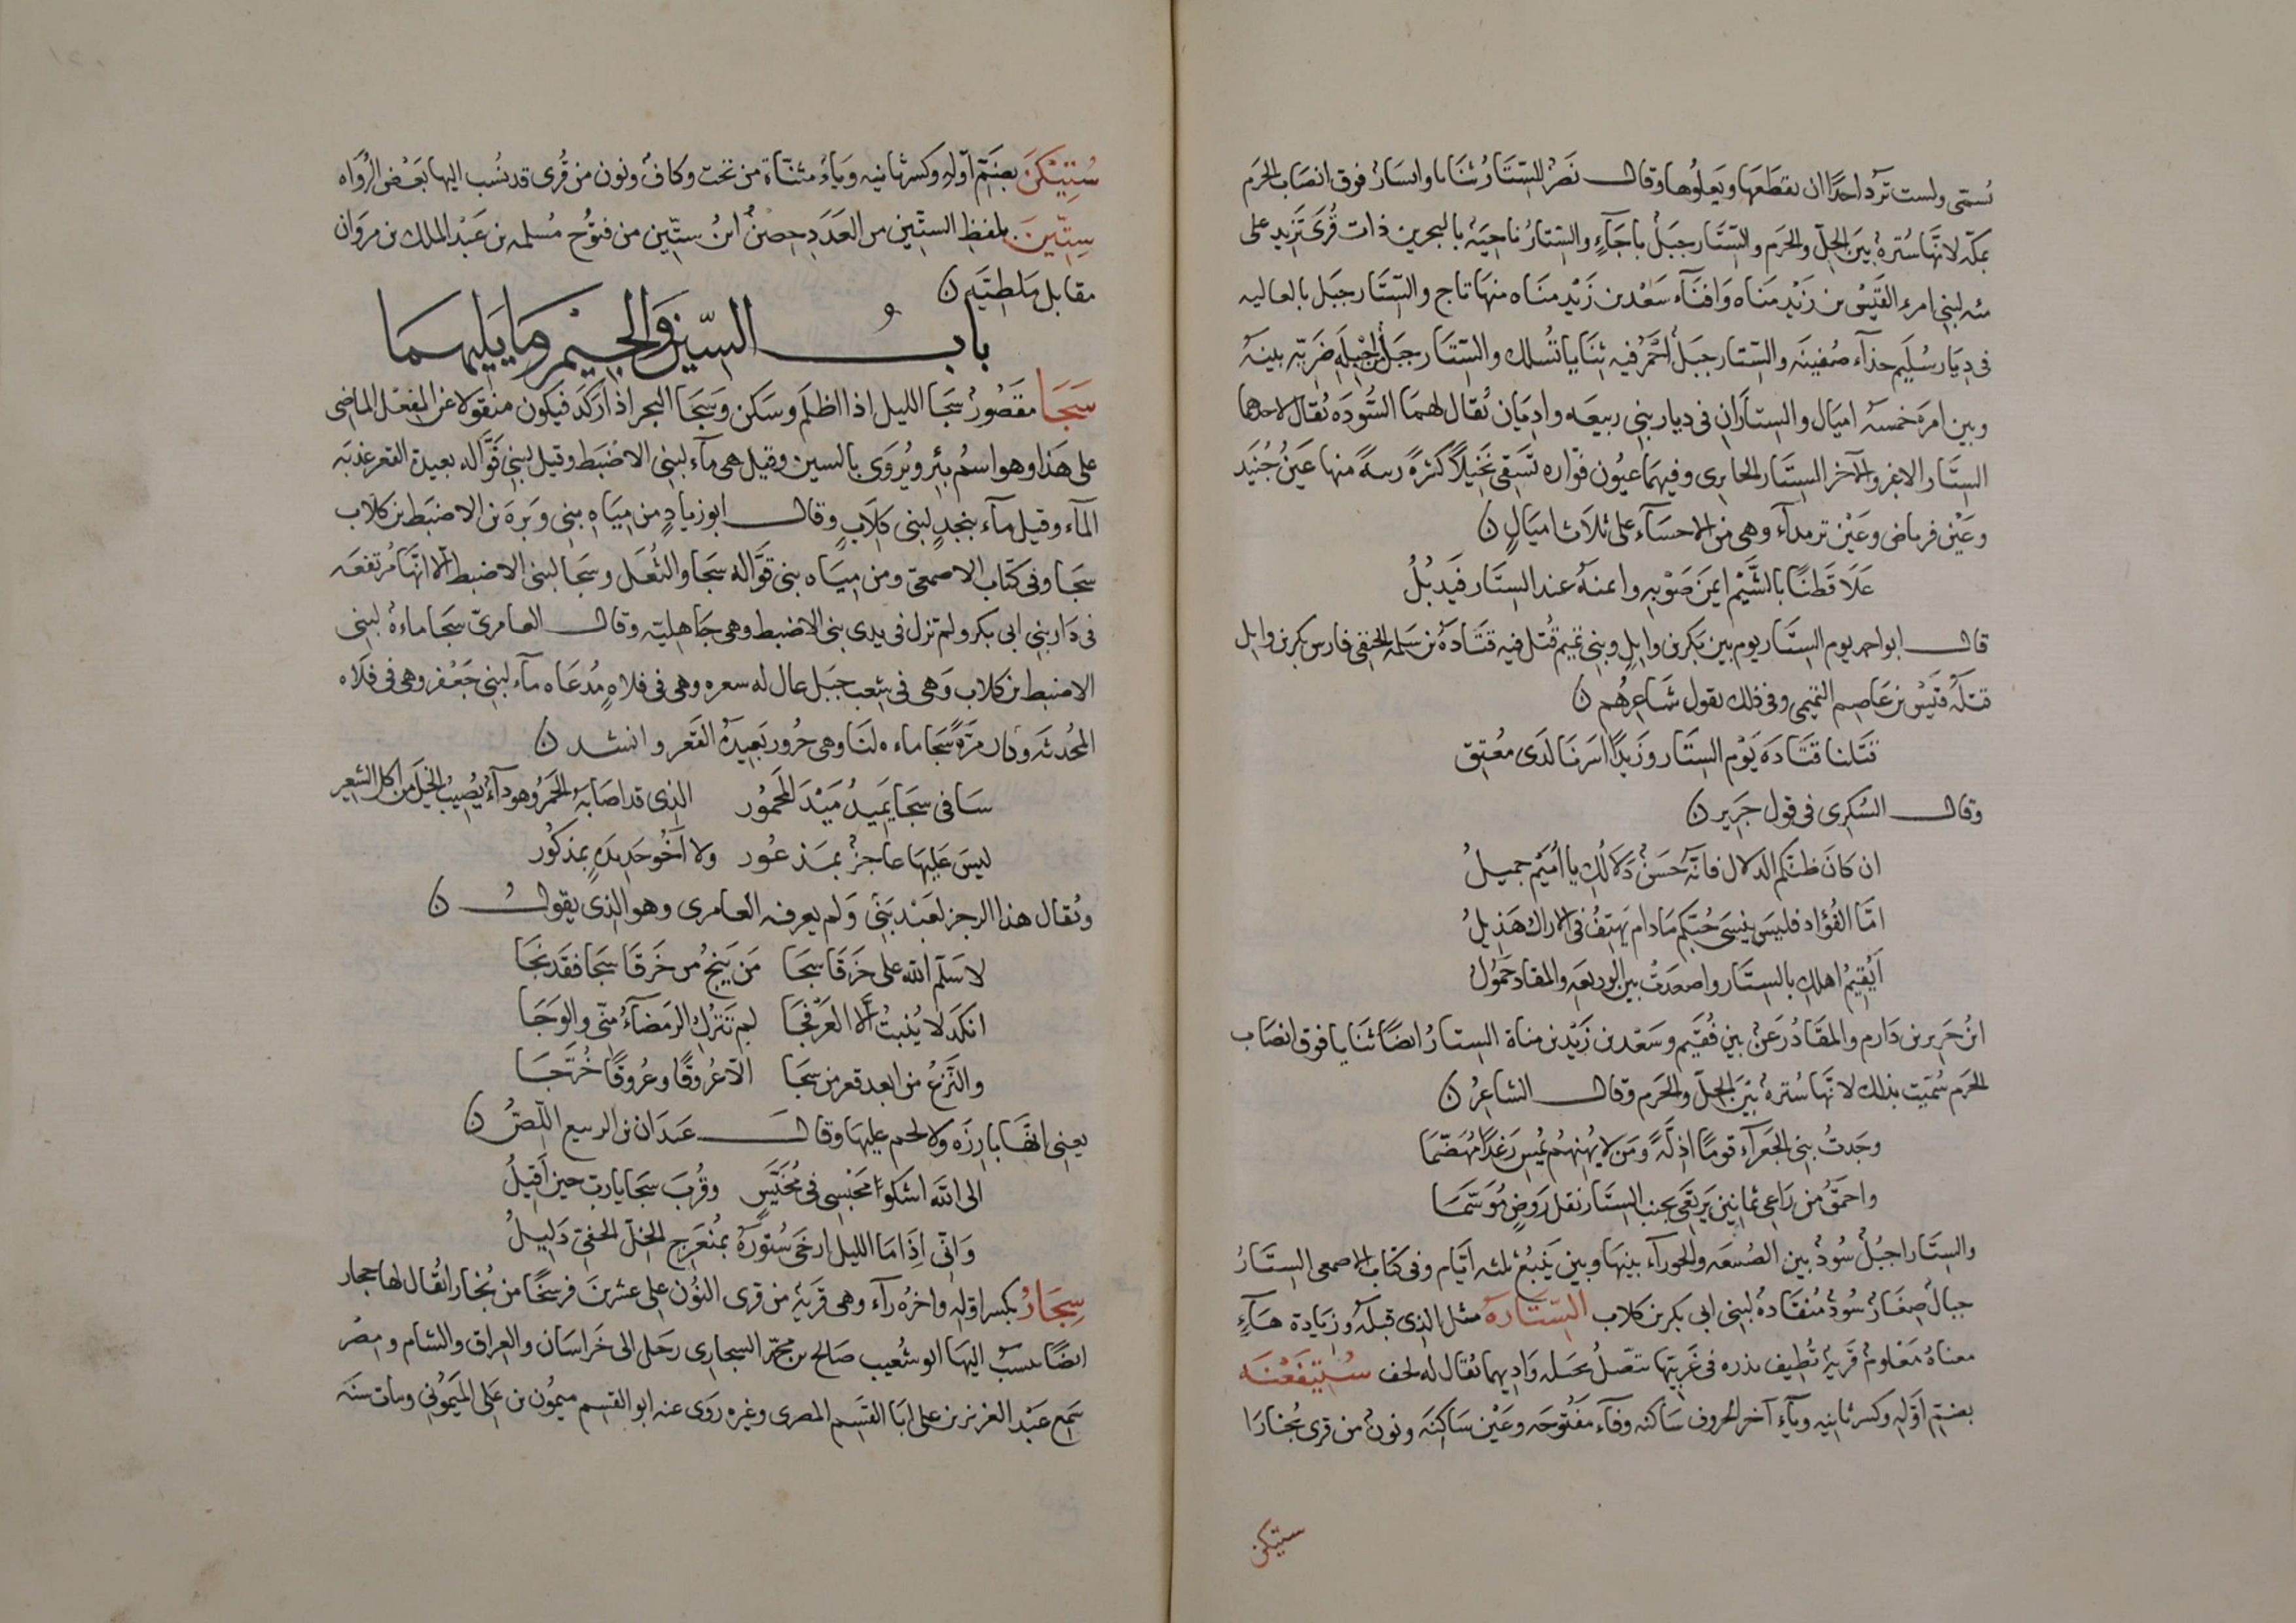 تسمى ولست ترد احدًا ان يقطعها ويعلوها وقال نصر الستار ثنايا وانشاز فوق انصاب الحرم
بمكة لانها سترة بين الحل والحرم والستار جبل باجاء والستار ناحية بالبحرين ذات قرى تزيد على
مئه لبني امرء القيس بن زيد مناه وافناء سعد بن زيد مناه منها ثاج والستار جبل بالعاليه
في ديار سليم حذاء صفينه والستار جبل احمر فيه ثنايا تسلك والستار جبل اجبله ضريه بينه
وبين امره خمسه اميال والستاران في ديار بني ربيعه واديان يقال لهما السوده يقال لاحدهما
الستار الاغبر والآخر الستار الجابري وفيهما عيون فواره تسقي نخيلًا كثرة منها عين حنيد
وعين فرياض وعين ترمداء وهي من الاحساء على ثلاث اميال ن
علا قطنًا بالشيم ايمن صوبه وايمنه عند الستار فيذبل
قال ابو احمد يوم الستار يوم بين بكر بن وايل وبني تميم قتل فيه قتادة بن سلمه الحنفي فارس بكر بن وايل
قتله قيس بن عاصم التميمي وفي ذلك يقول شاعرهم ن
قتلنا قتادة يوم الستار وزيدًا اسرنا لدى معتق
وقال السكري في قول جرير ن
ان كان طبكم الدلال فانه حسن دلالك يا اميم جميل
اما الفؤاد فليس ينسى حبكم ما دام يهتف في الاراك هذيل
أيقيم اهلك بالستار واصعدت بين الوريعه والمقاد حمول
ابن جرير بن دارم والمقاد رعن بين فقيم وسعد بن زيد بن مناة الستار ايضًا ثنايا فوق انصاب
الحرم سميت بذلك لانها سترة بين الحل والحرم وقال الشاعر ن
وجدت بني الجعراء قومًا اذلة ومن لا يهنهم يمس رغدًا مهضما
واحمق من راعي ثمانين يرتعي بجنب الستار بقل روض موسما
والستار اجبل سود بين الضيعه والحوراء بينها وبين ينبع ثلثه ايام وفي كتاب الاصمعي الستار
جبال صغار سود منقادة لبني ابي بكر بن كلاب الستارة مثل الذي قبله وزيادة هاء
معناه معلوم قرية تطيف بذره في غربيها تتصل بجبله واديهما يقال له لحف ستيفغنه
بضم اوله وكسر ثانيه وياء آخر الحروف ساكنه وفاء مفتوحه وغين ساكنه ونون من قرى بخارا
ستيكن
ستيكن بضم اوله وكسر ثانيه وياء مثناة من تحت وكاف ونون من قرى قد نسب اليها بعض الرواه
ستين بلفظ الستين من العدد حصن ابن ستين من فتوح مسلمه بن عبد الملك بن مروان
مقابل ملطيه ن
باب السين والجيم وما يليهما
سجا مقصور سجا الليل اذا اظلم وسكن وسجا البحر اذا ركد فيكون منقولا عن الفعل الماضي
على هذا وهو اسم بئر ويروى بالسين وقيل هي ماء لبني الاضبط وقيل لبني قواله بعيدة القعر عذبه
الماء وقيل ماء بنجد لبني كلاب وقال ابو زياد من مياه بني وبرة بن الاضبط بن كلاب
سجا وفي كتاب الاصمعي ومن مياه بني قواله سجا والثعل وسجا لبني الاضبط الا انها مرتفعه
في دار بني ابي بكر ولم تزل في يدي بني الاضبط وهي جاهليه وقال العامري سجا ماءة لبني
الاضبط بن كلاب وهي في شعب جبل عال له سعره وهي في فلاه مدعاه ماء لبني جعفر وهي في فلاه
المحدثه وقال مرة سجا ماءه لنا وهي جرور بعيدة القعر وانشد ن
ساقي سجا يميد ميد المحمور الذي قد اصابه الحمر وهو داء يصيب الخيل من اكل الشعير
ليس عليها عاجز بمذعور ولا اخو حديده بمذكور
ويقال هذا الرجز لعبد بني ولم يعرفه العامري وهو الذي يقول ن
لا سلم الله على خرقا سجا من ينج من خرقا سجا فقد نجا
انكد لا ينبت الا العرفجا لم تترك الرمضاء مني والوجا
والنزع من ابعد قعر من سجا الا عروقًا وعروقًا خرجا
يعني انها بارزه ولا لحم عليها وقال عيدان بن الربيع اللص ن
الى الله اشكو محبسي في مخيس وقرب سجا يا رب حين اقيل
واني اذا ما الليل ارخى ستوره بمنعرج الخل الخفي دليل
سجار بكسر اوله واخره راء وهي قرية من قرى النون على عشرين فرسخًا من بخارا يقال لها ججار
ايضًا ينسب اليها ابو شعيب صالح بن محمد السجاري رحل الى خراسان والعراق والشام ومصر
سمع عبد العزيز بن علي ابا القسم المصري وغيره روى عنه ابو القسم ميمون بن علي الميموني ومات سنه